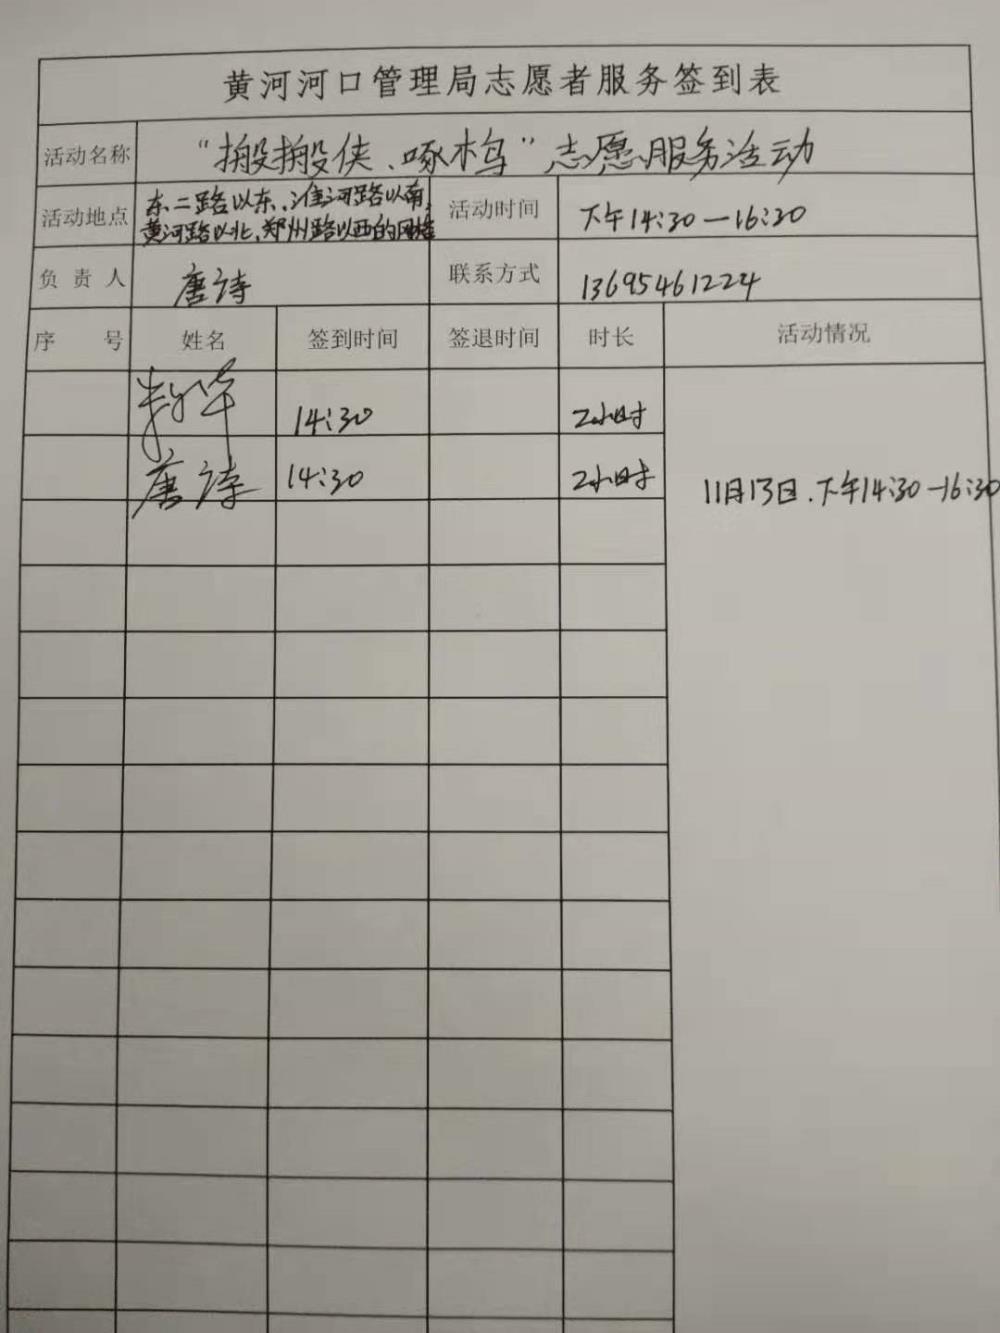 黄河河口管理局志愿者服务签到表
活动名称 “搬搬侠、啄木鸟”志愿服务活动
活动地点 东二路以东、淮河路以南,
黄河路以北、郑州路以西的网格
活动时间 下午14:30—16:30
负责人 唐诗 联系方式 13695461224
序号 姓名 签到时间 签退时间 时长 活动情况
14:30 2小时
唐诗 14:30 2小时
11月13日.下午14:30-16:30